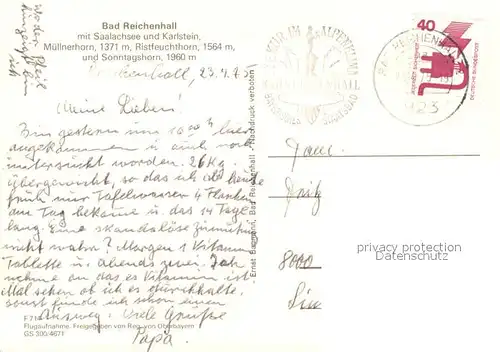 Wo der Pfeil
hinzeigt bin
ich
Bad Reichenhall
mit Saalachsee und Karlstein,
Müllnerhorn, 1371 m, Ristfeuchthorn, 1564 m,
und Sonntagshorn, 1960 m
Reichenhall, 23.4.75
Meine Lieben!
Bin gestern um 16 00 h hier
angekommen u. auch vorh.
untersucht worden. 26 Kg.
Übergewicht, so das ich ab heute
früh nur Tafelwasser 4 Flaschen
am Tag bekomme u. das 14 Tage
lang. Eine skandalöse Zumutung
nicht wahr? Morgen 1 Vitamin
Tablette u. abends zwei. Ich
nehme an das es Vitamin ist
Mal sehen ob ich es durchhalte.
sonst finde ich schon einen
Ausweg. Viele Grüße
Papa.
Flugaufnahme. Freigegeben von Reg. von Oberbayern
GS 300/4671
Ernst Baumann, Bad Reichenhall - Nachdruck verboten
40
DEUTSCHE BUNDESPOST
BAD REICHENHALL
Fam.
8000
privacy protection
Datenschutz